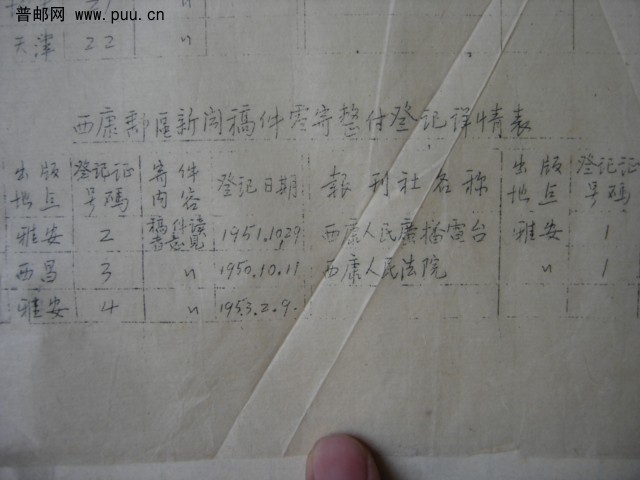 普邮网
www.puu.cn
天津 22 〃
西康郵區新闻稿件零寄整付登记详情表
出版地点 登记证号碼 寄件内容 登记日期 報刊社名称 出版地点 登记证号码
雅安 2 稿件读者意見 1951.10.29 西康人民廣播電台 雅安 1
西昌 3 〃 1950.10.11 西康人民法院 〃 1
雅安 4 〃 1953.2.9.